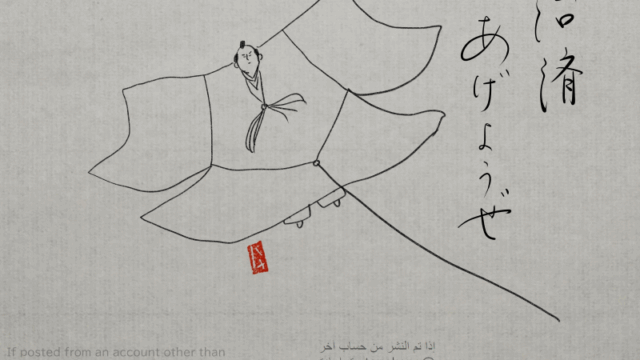 済
あげようぜ
.If posted from an account other than
اذا تم النشر من حساب آخر